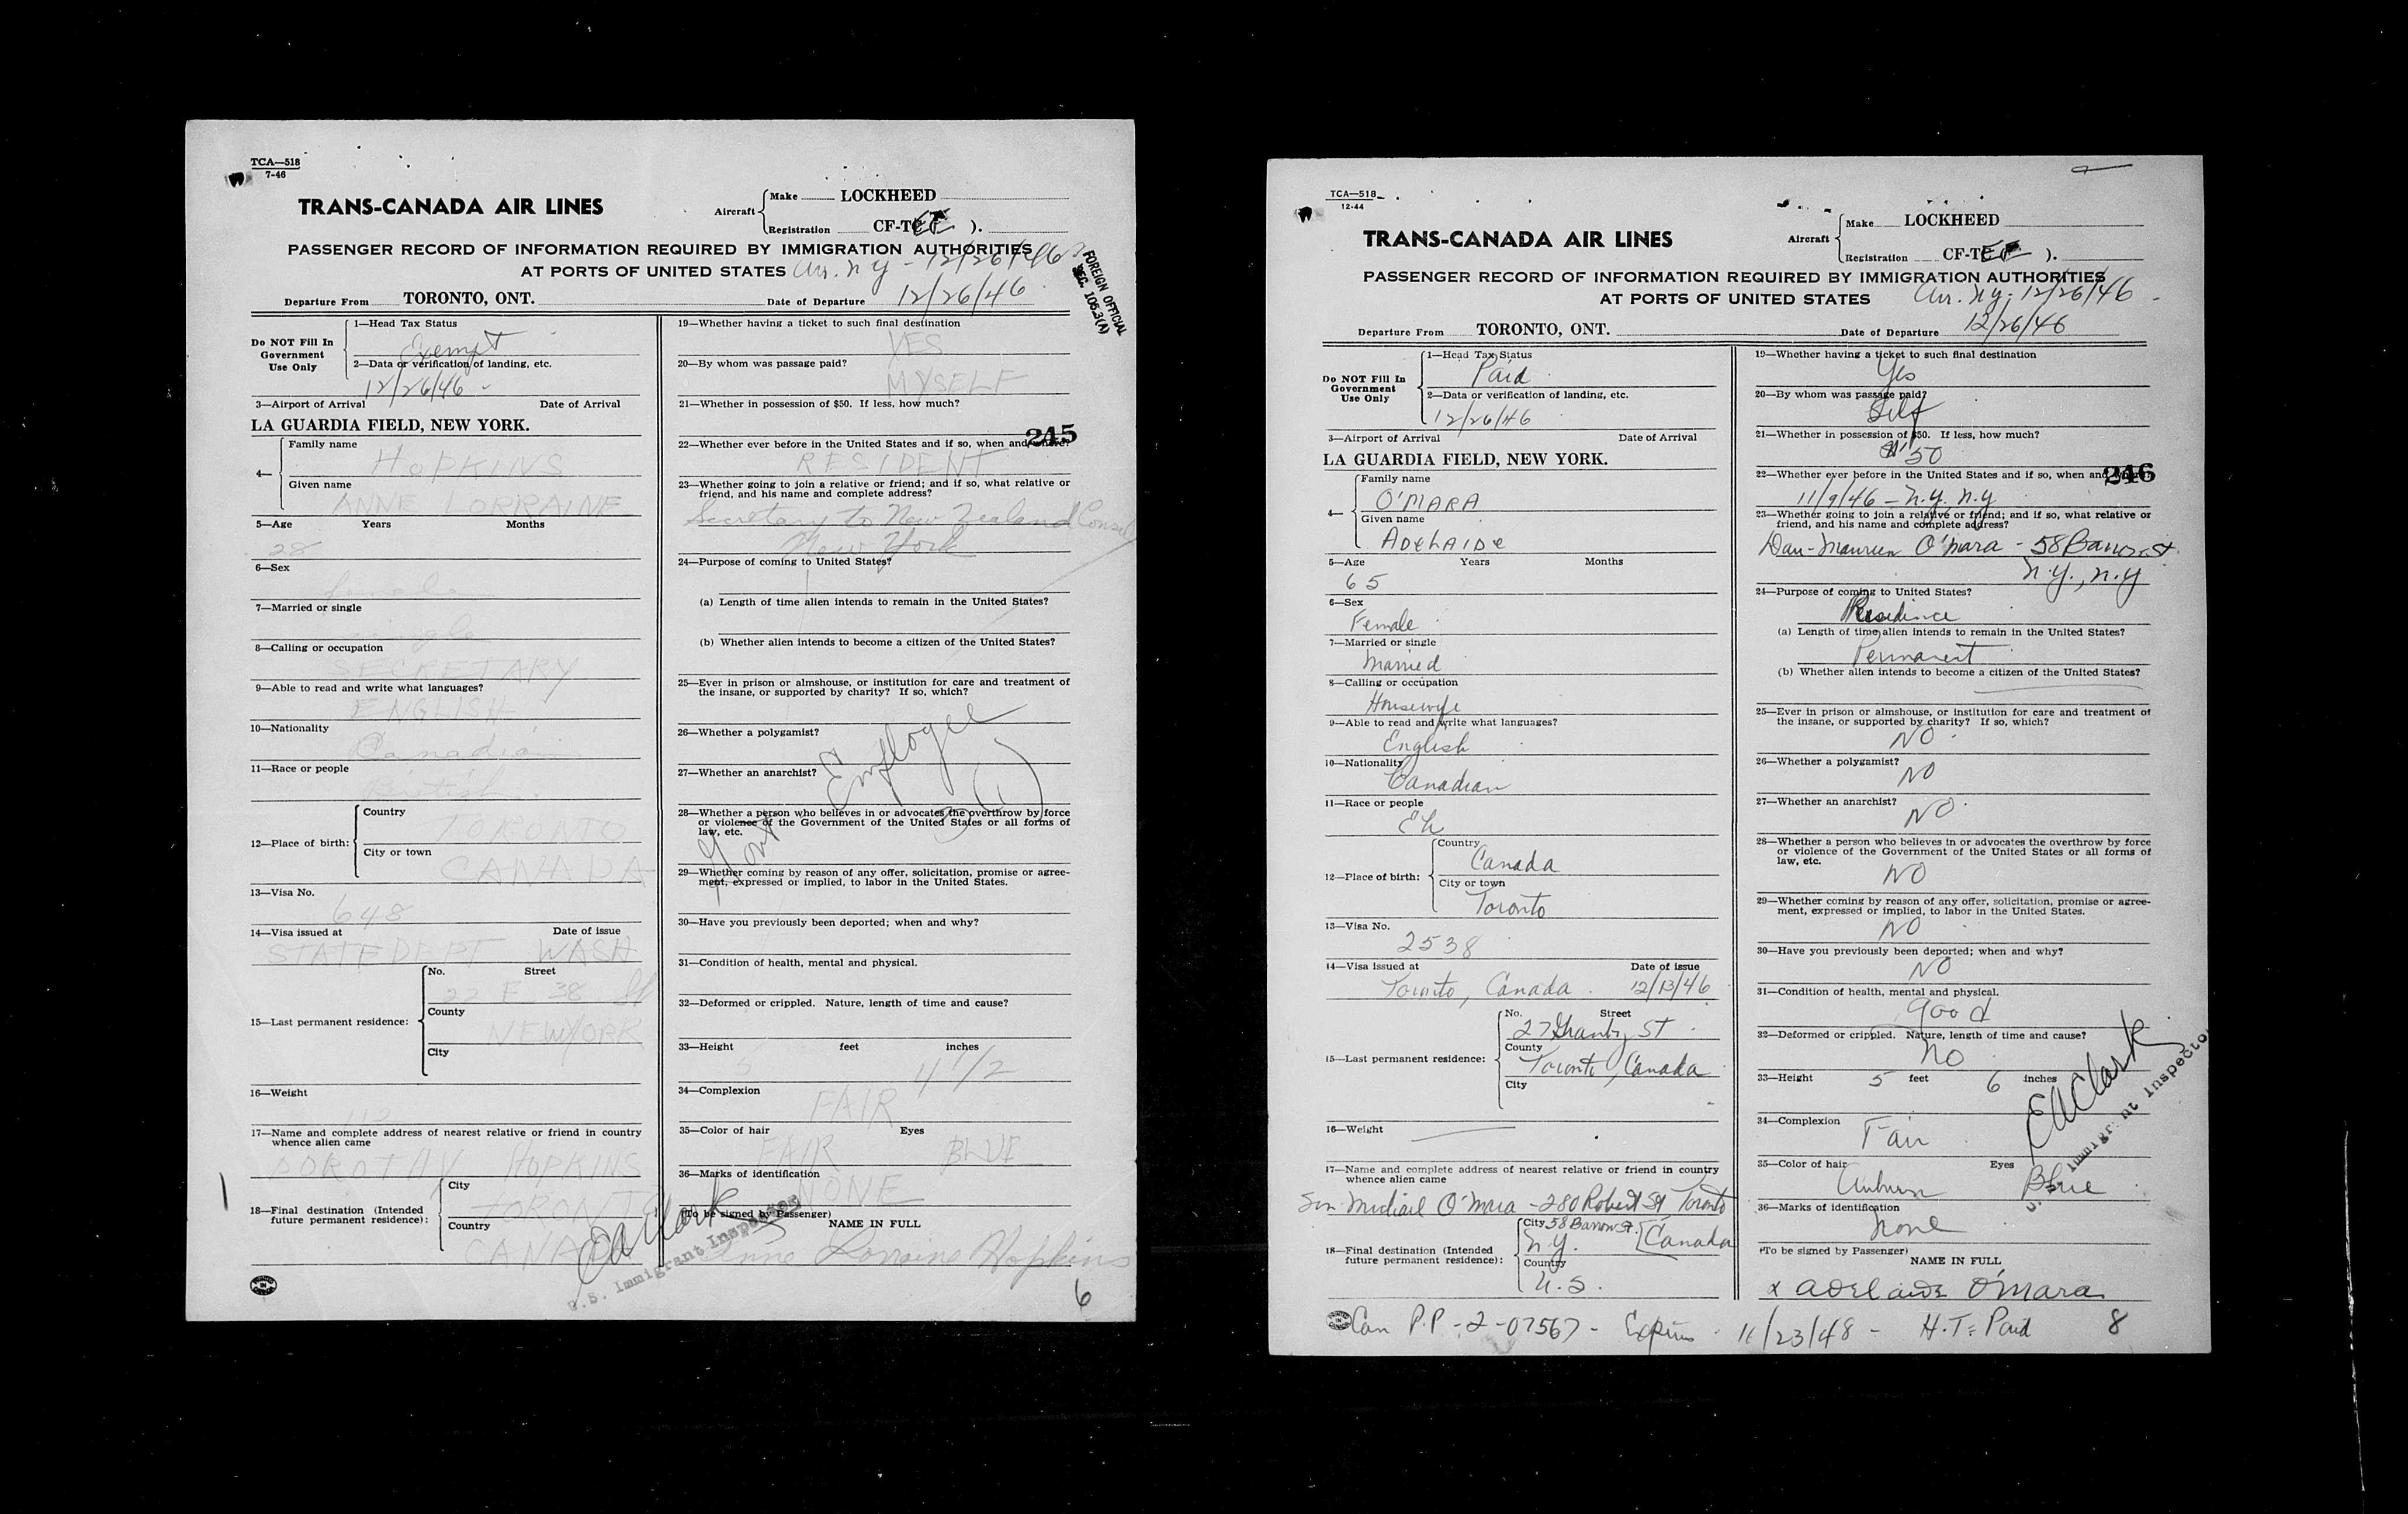 TCA—518
7-46
TRANS-CANADA AIR LINES
Aircraft
Make LOCKHEED
Registration CF-TC ).
PASSENGER RECORD OF INFORMATION REQUIRED BY IMMIGRATION AUTHORITIES
AT PORTS OF UNITED STATES Arr. N Y - 12/26/46
FOREIGN OFFICIAL
SEC. 1053(A)
Departure From TORONTO, ONT. Date of Departure 12/26/46
Do NOT Fill In
Government
Use Only
1—Head Tax Status
Exempt
2—Data or verification of landing, etc.
12/26/46 -
3—Airport of Arrival Date of Arrival
LA GUARDIA FIELD, NEW YORK.
4—
Family name
HOPKINS
Given name
ANNE LORRAINE
5—Age Years Months
28
6—Sex
female
7—Married or single
single
8—Calling or occupation
SECRETARY
9—Able to read and write what languages?
ENGLISH
10—Nationality
Canadian
11—Race or people
British.
12—Place of birth:
Country
TORONTO
City or town
CANADA
13—Visa No.
648
14—Visa issued at Date of issue
STATE DEPT WASH
15—Last permanent residence:
No. Street
22 E 38 St
County
NEW YORK
City
16—Weight
113
17—Name and complete address of nearest relative or friend in country
whence alien came
DOROTHY HOPKINS
18—Final destination (Intended
future permanent residence):
City
TORONTO
Country
CANADA
EA Clark
U.S. Immigrant Inspector
19—Whether having a ticket to such final destination
YES
20—By whom was passage paid?
MYSELF
21—Whether in possession of $50. If less, how much?
245
22—Whether ever before in the United States and if so, when and where?
RESIDENT
23—Whether going to join a relative or friend; and if so, what relative or
friend, and his name and complete address?
Secretary to New Zealand Consul
New York
24—Purpose of coming to United States?
(a) Length of time alien intends to remain in the United States?
(b) Whether alien intends to become a citizen of the United States?
25—Ever in prison or almshouse, or institution for care and treatment of
the insane, or supported by charity? If so, which?
26—Whether a polygamist?
27—Whether an anarchist?
Govt Employee
3(1)
28—Whether a person who believes in or advocates the overthrow by force
or violence of the Government of the United States or all forms of
law, etc.
29—Whether coming by reason of any offer, solicitation, promise or agree-
ment, expressed or implied, to labor in the United States.
30—Have you previously been deported; when and why?
31—Condition of health, mental and physical.
32—Deformed or crippled. Nature, length of time and cause?
33—Height feet inches
5 4 1/2
34—Complexion
FAIR
35—Color of hair Eyes
FAIR BLUE
36—Marks of identification
NONE
(To be signed by Passenger)
NAME IN FULL
Anne Lorraine Hopkins
6
TCA—518
12-44
TRANS-CANADA AIR LINES
Aircraft
Make LOCKHEED
Registration CF-T ).
PASSENGER RECORD OF INFORMATION REQUIRED BY IMMIGRATION AUTHORITIES
AT PORTS OF UNITED STATES Arr. N.Y. 12/26/46 -
Departure From TORONTO, ONT. Date of Departure 12/26/46
Do NOT Fill In
Government
Use Only
1—Head Tax Status
Paid
2—Data or verification of landing, etc.
12/26/46
3—Airport of Arrival Date of Arrival
LA GUARDIA FIELD, NEW YORK.
4—
Family name
O'MARA
Given name
ADELAIDE
5—Age Years Months
65
6—Sex
Female
7—Married or single
Married
8—Calling or occupation
Housewife
9—Able to read and write what languages?
English
10—Nationality
Canadian
11—Race or people
12—Place of birth:
Country
Canada
City or town
Toronto
13—Visa No.
2538
14—Visa issued at Date of issue
Toronto, Canada. 12/13/46
15—Last permanent residence:
No. Street
27 Granby ST
County
Toronto, Canada
City
16—Weight
17—Name and complete address of nearest relative or friend in country
whence alien came
Son Michael O'Mara - 280 Robert St Toronto
Canada
18—Final destination (Intended
future permanent residence):
City 58 Barrow St.
N.Y.
Country
U.S.
19—Whether having a ticket to such final destination
Yes
20—By whom was passage paid?
Self
21—Whether in possession of $50. If less, how much?
$50
246
22—Whether ever before in the United States and if so, when and where?
11/9/46 - N.Y. N.Y
23—Whether going to join a relative or friend; and if so, what relative or
friend, and his name and complete address?
Dau - Maureen O'Mara - 58 Barrow St.
N.Y., N.Y
24—Purpose of coming to United States?
Residence
(a) Length of time alien intends to remain in the United States?
Permanent
(b) Whether alien intends to become a citizen of the United States?
25—Ever in prison or almshouse, or institution for care and treatment of
the insane, or supported by charity? If so, which?
NO
26—Whether a polygamist?
NO
27—Whether an anarchist?
NO
28—Whether a person who believes in or advocates the overthrow by force
or violence of the Government of the United States or all forms of
law, etc.
NO
29—Whether coming by reason of any offer, solicitation, promise or agree-
ment, expressed or implied, to labor in the United States.
NO
30—Have you previously been deported; when and why?
NO
31—Condition of health, mental and physical.
good
32—Deformed or crippled. Nature, length of time and cause?
No
33—Height 5 feet 6 inches
34—Complexion
Fair
35—Color of hair Eyes
Auburn Blue
36—Marks of identification
None
EA Clark
U.S. Immigrant Inspector
(To be signed by Passenger)
NAME IN FULL
x Adelaide O'Mara
Can P.P - 2-07567 - Expires 11/23/48 - H.T. Paid 8